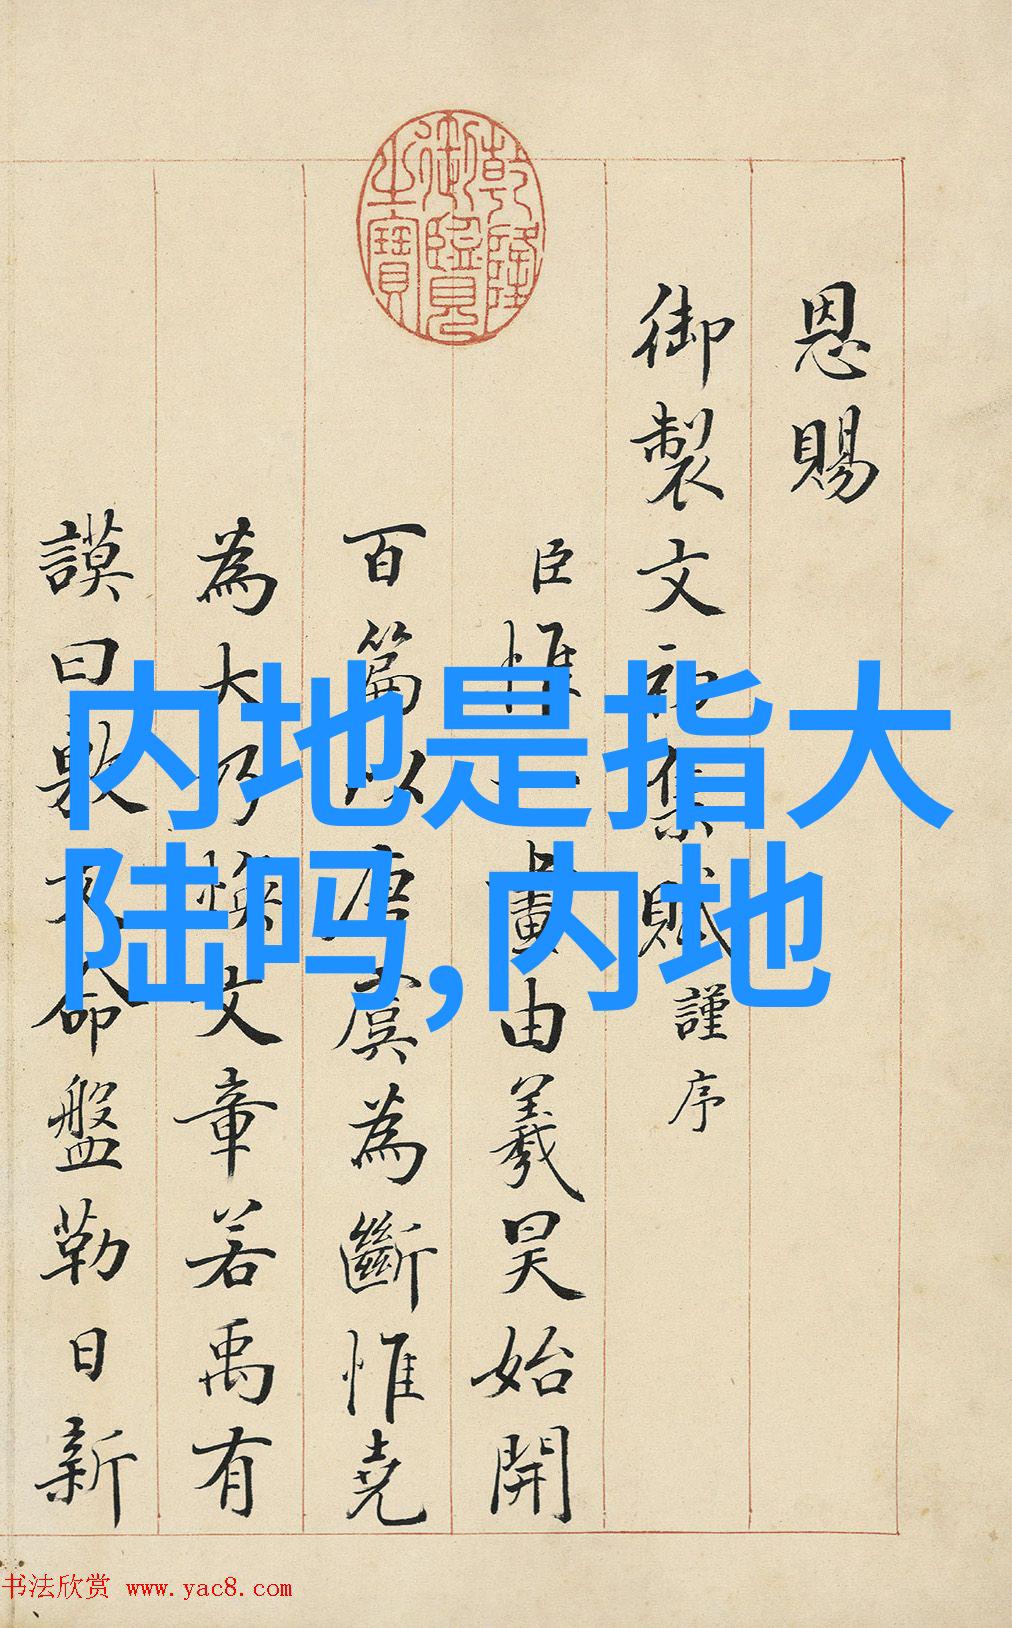 内地是指大
陆吗,内地
乾隆
御覽
之寶
恩賜
御製文初集賦謹序
臣惟一畫由羲昊始開
百篇以唐虞為斷惟堯
為大乃煥文章若禹有
謨曰敷文命盤勒日新
书法欣赏 www.yac8.com